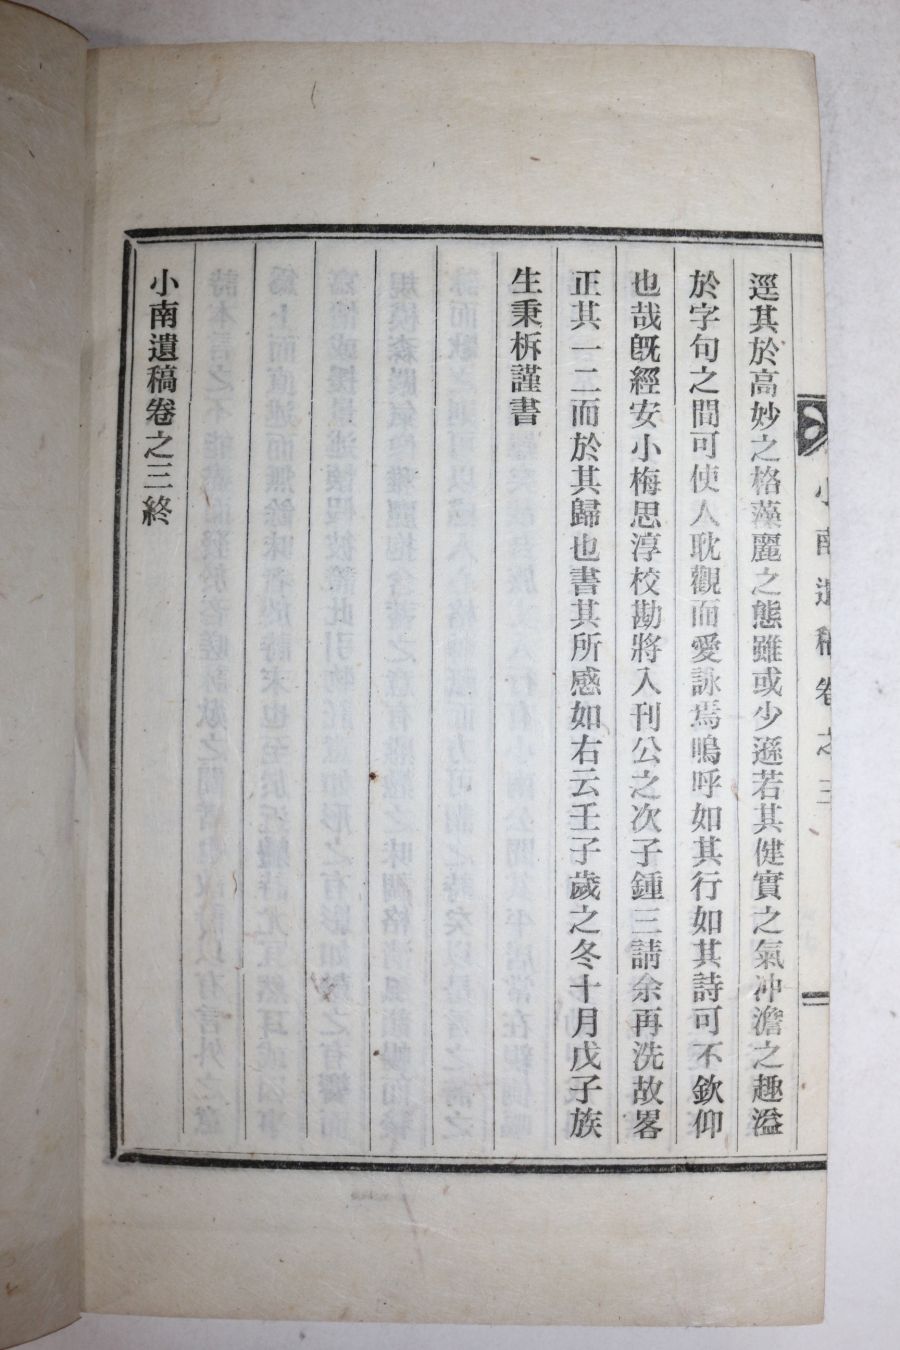 逕其於高妙之格藻麗之態雖或少遜若其健實之氣冲澹之趣溢
於字句之間可使人耽觀而愛詠焉嗚呼如其行如其詩可不欽仰
也哉旣經安小梅思淳校勘將入刊公之次子鍾三請余再洗故畧
正其一二而於其歸也書其所感如右云壬子歲之冬十月戊子族
生秉柝謹書
小南遺稿卷之三終
小南遺稿卷之三